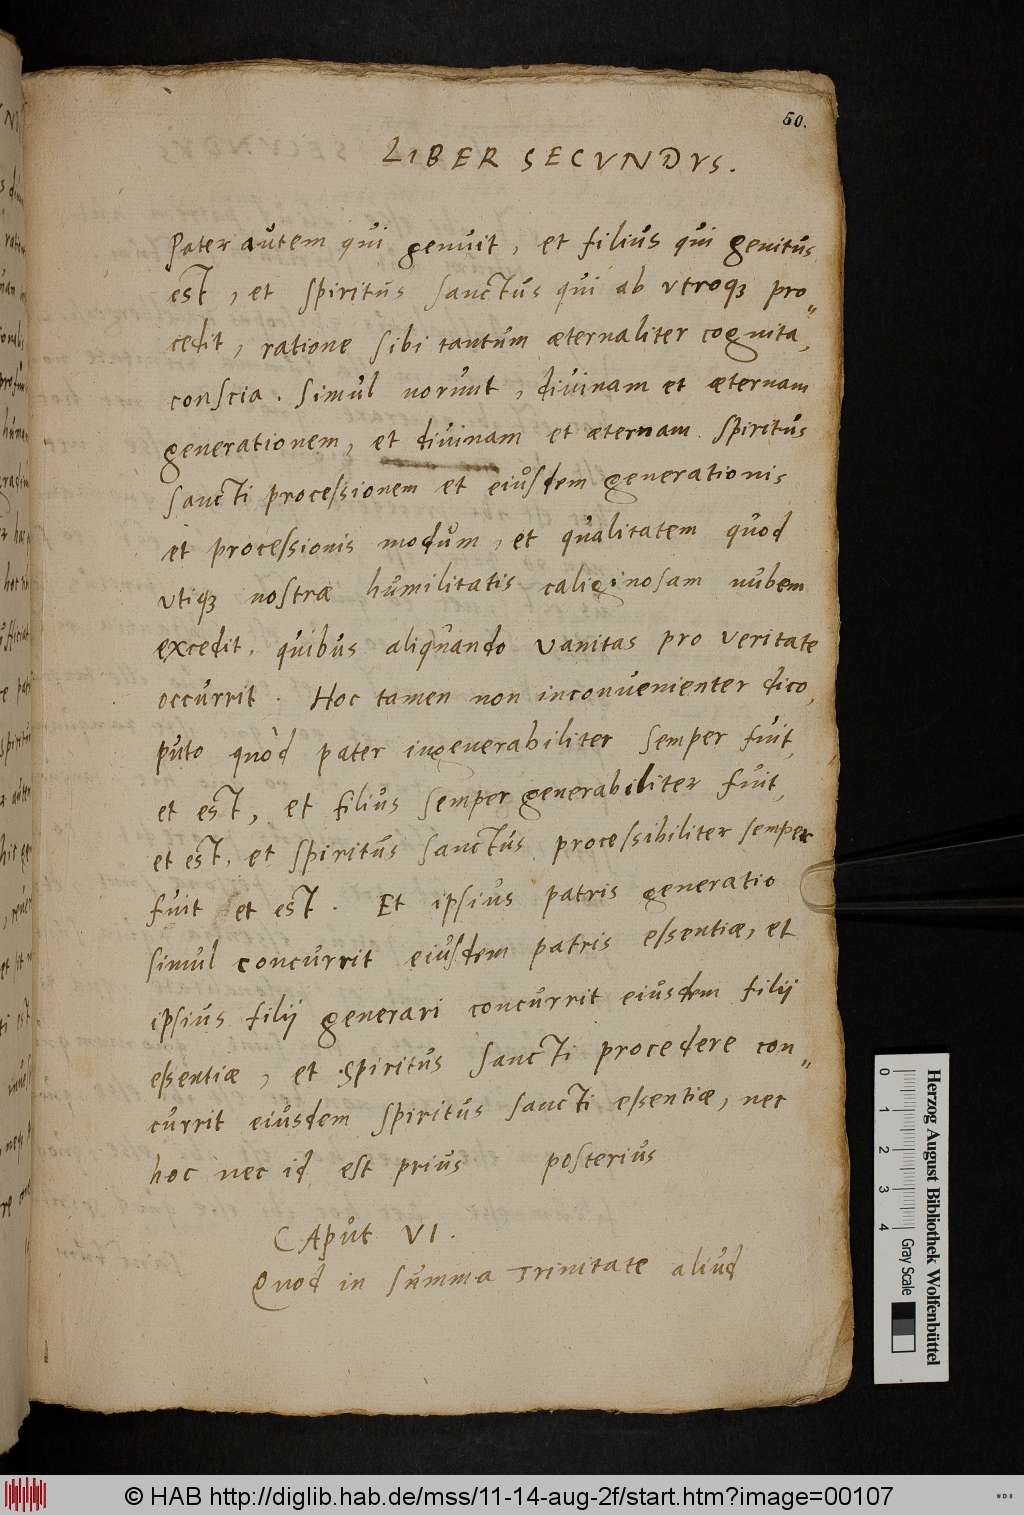 50.
LIBER SECVNDVS.
Pater autem qui genuit, et filius qui genitus
est, et spiritus sanctus qui ab vtroqꝫ pro„
cedit, ratione sibi tantum æternaliter cognita,
conscia. simul norunt, diuinam et æternam
generationem, et diuinam et æternam spiritus
sancti processionem et eiusdem generationis
et processionis modum, et qualitatem quod
vtiqꝫ nostræ humilitatis caliginosam nubem
excedit. quibus aliquando vanitas pro veritate
occurrit. Hoc tamen non inconuenienter dico,
puto quòd pater ingenerabiliter semper fuit,
et est, et filius semper generabiliter fuit,
et est, et spiritus sanctus processibiliter semper
fuit et est. Et ipsius patris generatio
simul concurrit eiusdem patris essentiæ, et
ipsius filij generari concurrit eiusdem filij
essentiæ, et spiritus sancti procedere con„
currit eiusdem spiritus sancti essentiæ, nec
hoc nec id est prius posterius
CAput VI.
Quod in summa Trinitate aliud
Herzog August Bibliothek Wolfenbüttel
0 1 2 3 4 Gray Scale
© HAB http://diglib.hab.de/mss/11-14-aug-2f/start.htm?image=00107